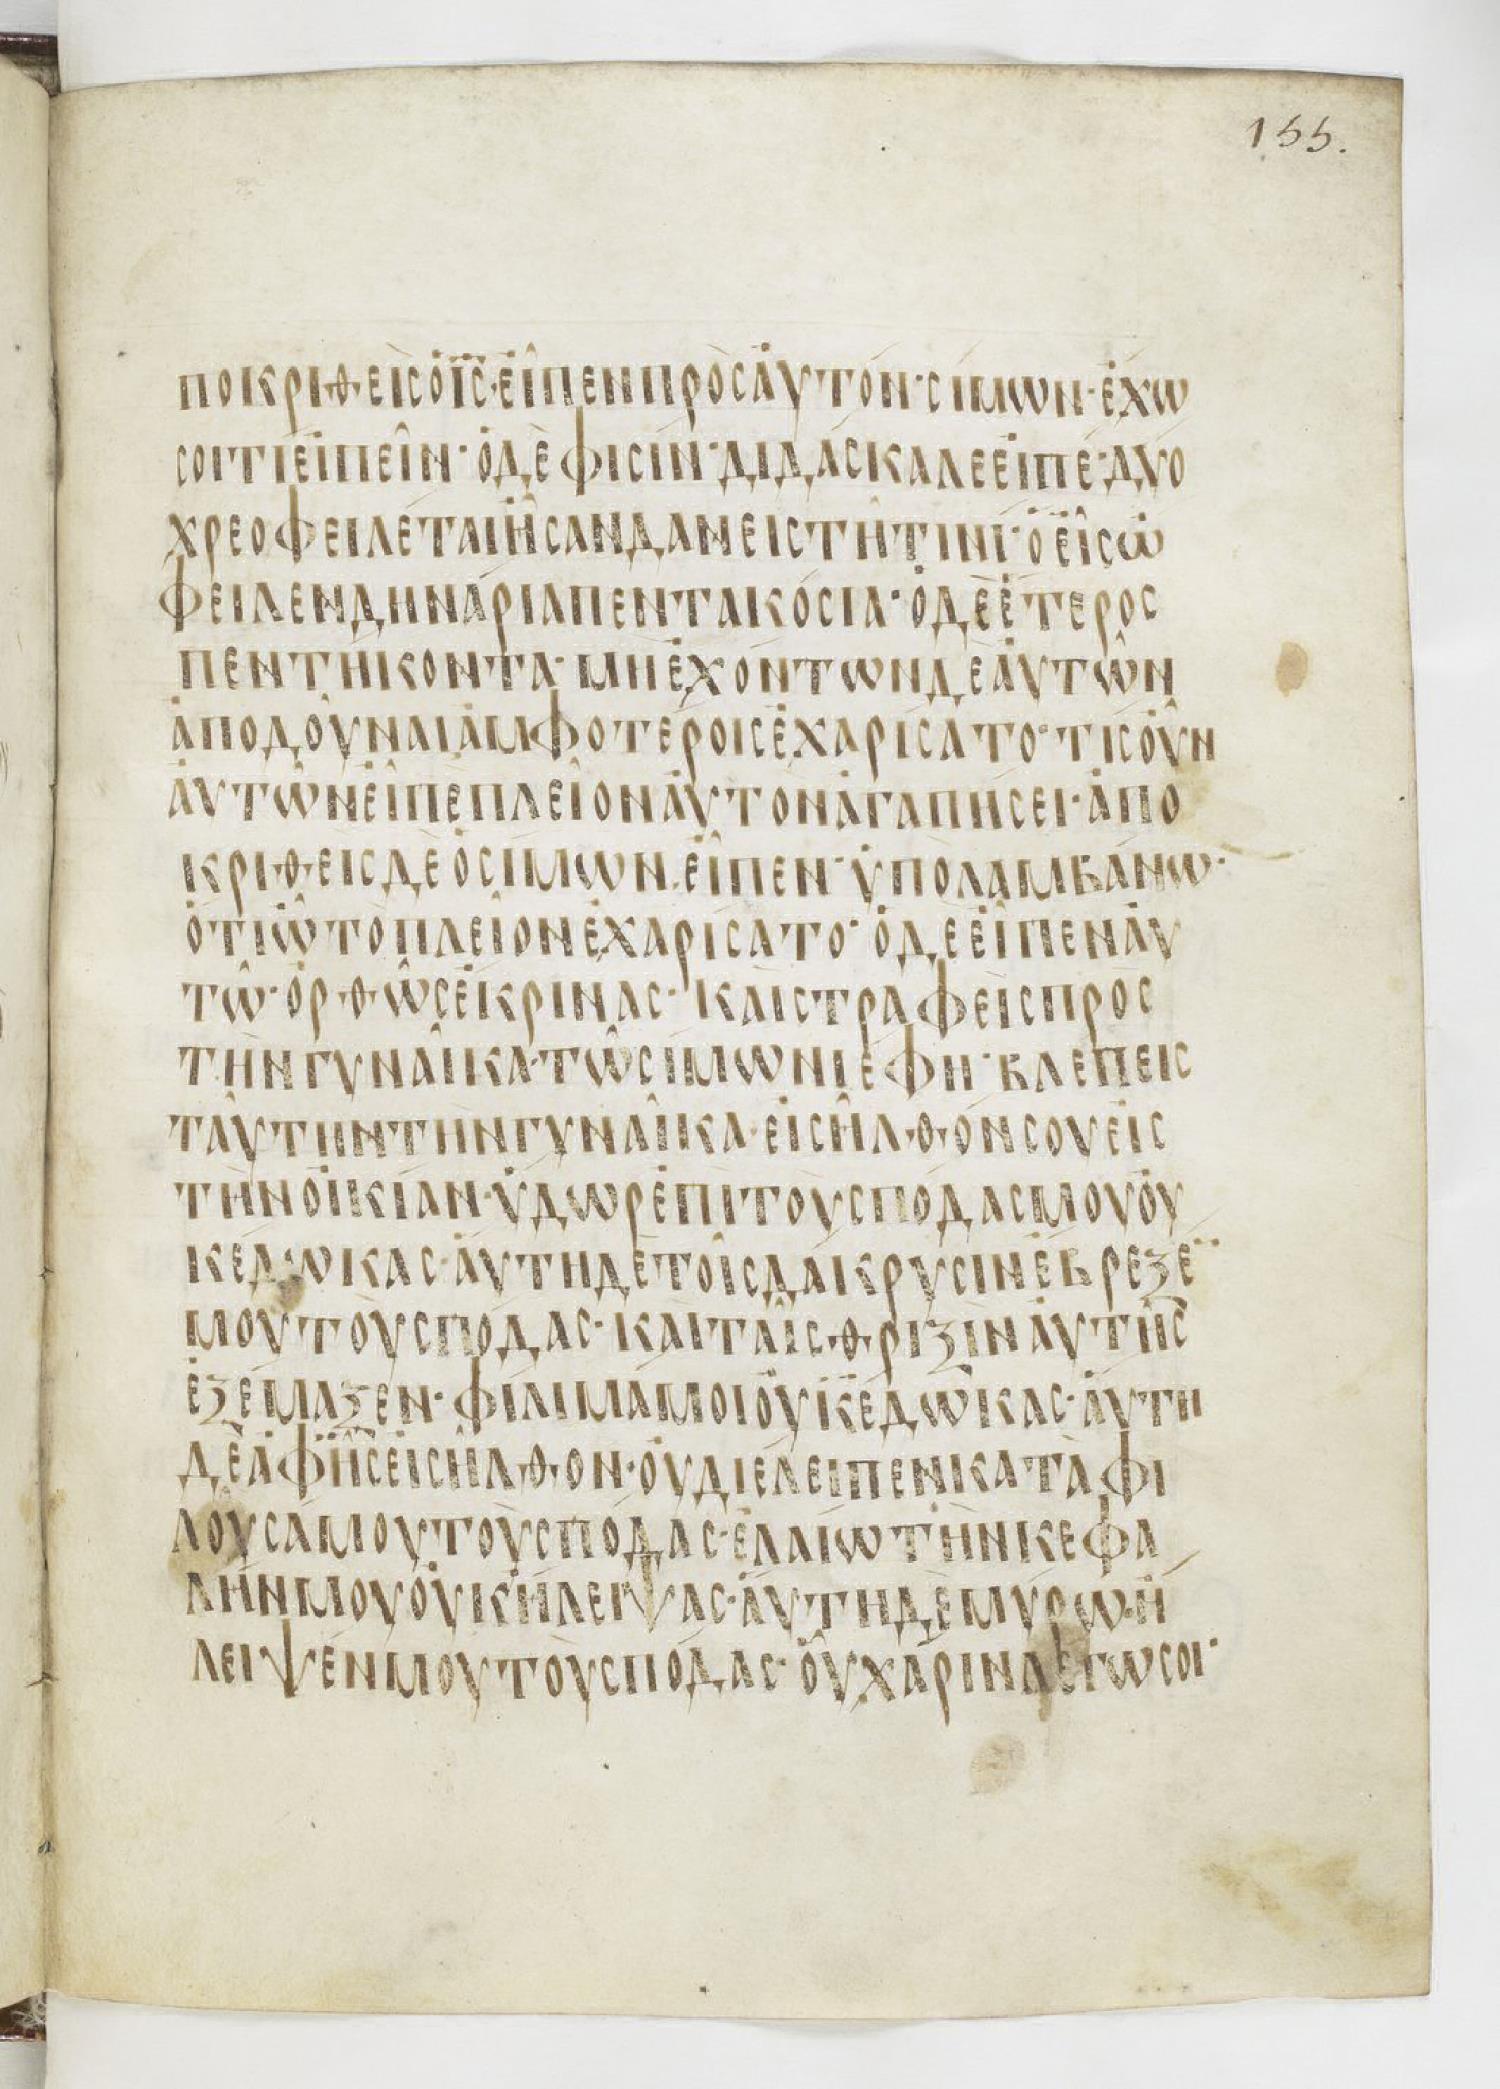 155.
ποκριθεὶς ὁ ις· εἶπεν πρὸς ἀυτόν· σίμων· ἔχω
σοι τὶ εἰπεῖν· ὁ δὲ φισίν· διδάσκαλε εἰπέ· δύο
χρεοφειλέται ἦσαν δανειστῆ τινί· ὁ εἷς ὠ
φειλεν δηνάρια πεντακόσια· ὁ δὲ ἕτερος
πεντήκοντα· μὴ ἐχόντων δὲ ἀυτῶν
ἀποδοῦναι ἀμφοτέροις ἐχαρίσατο· τίς οὖν
ἀυτῶν εἰπὲ πλεῖον ἀυτὸν ἀγαπήσει· ἀπο
κριθεὶς δὲ ὁ σίμων. εἶπεν· ὑπολαμβάνω·
ὅτι ὧ τὸ πλεῖον ἐχαρίσατο· ὁ δὲ εἶπεν ἀυ
τῶ· ὀρθῶς ἔκρινας· καὶ στραφεὶς πρὸς
τὴν γυναῖκα· τῶ σίμωνι ἔφη· βλέπεις
ταύτην τὴν γυναῖκα· εἰσῆλθόν σου εἰς
τὴν οἰκίαν· ὕδωρ ἐπὶ τοὺς πόδας μου οὐ
κ ἔδωκας· ἀυτη δὲ τοῖς δάκρυσιν ἔβρεξέ
μου τοὺς πόδας· καὶ ταῖς θριξὶν ἀυτῆς
ἐξέμαξεν· φίλιμά μοι οὐκ ἔδωκας· ἀυτη
δὲ ἀφ ἧς εἰσῆλθον· οὐ διέλειπεν καταφι
λοῦσα μου τοὺς πόδας· ἐλαίω τὴν κεφα
λήν μου οὐκ ἤλειψας· ἀυτη δὲ μύρω· ἤ
λειψέν μου τοὺς πόδας· οὗ χάριν λέγω σοι·